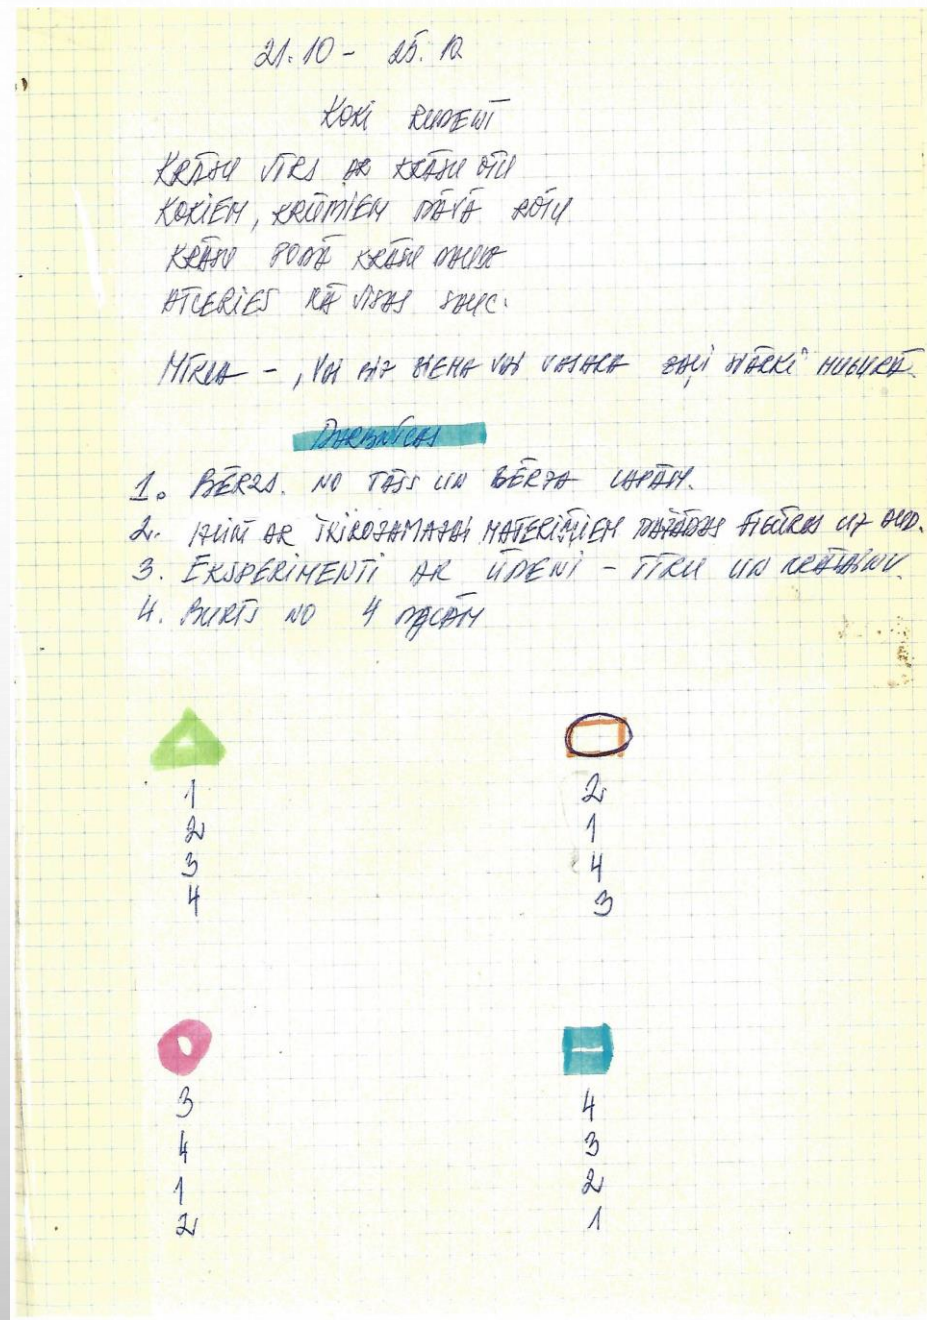 21.10 - 25.10
KOKI RUDENĪ
KRĀSU VĪRS AR KRĀSU OTU
KOKIEM, KRŪMIEM DĀVĀ ROTU
KRĀSU PODĀ KRĀSU DAUDZ
ATCERIES KĀ VISAS SAUC.
MĪKLA - "VAI BIJ ZIEMA VAI VASARA ZAĻI SVĀRKI MUGURĀ.
DARBNĪCAS
1. BĒRZS. NO TĀSS UN BĒRZA LAPĀM.
2. IZLIKT AR MATERIĀLIEM DAŽĀDAS FIGŪRAS UZ AUD.
3. EKSPERIMENTI AR ŪDENI - TĪRU UN KRĀSAINU.
4. BURTS NO 4 DAĻĀM
1
2
3
4
2
1
4
3
3
4
1
2
4
3
2
1